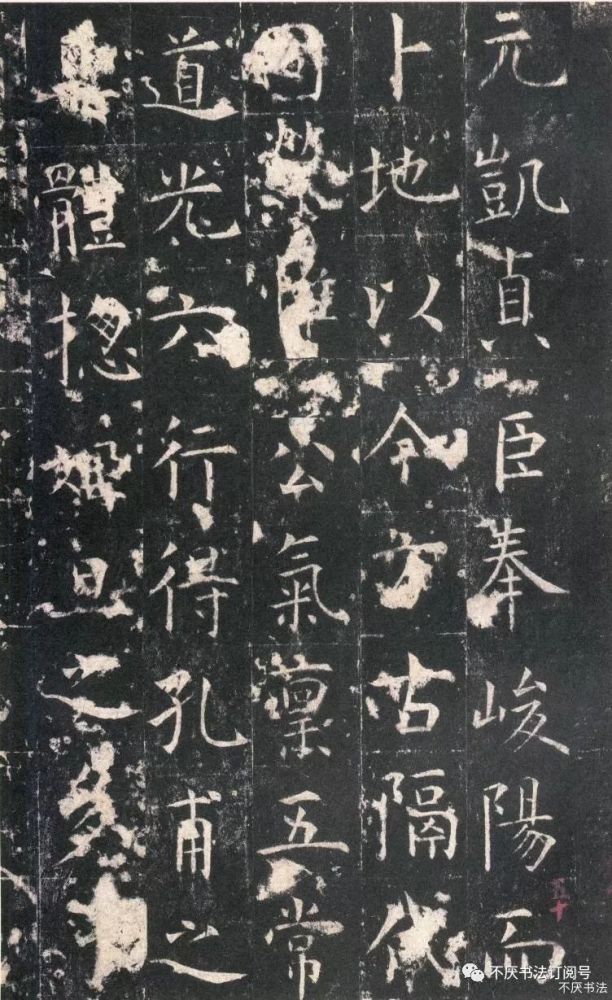 元凱貞臣奉峻陽而
卜地以今方古隔代
同榮惟公氣稟五常
道光六行得孔甫之
具體揔姬旦之多
五十
不厌书法订阅号
不厌书法